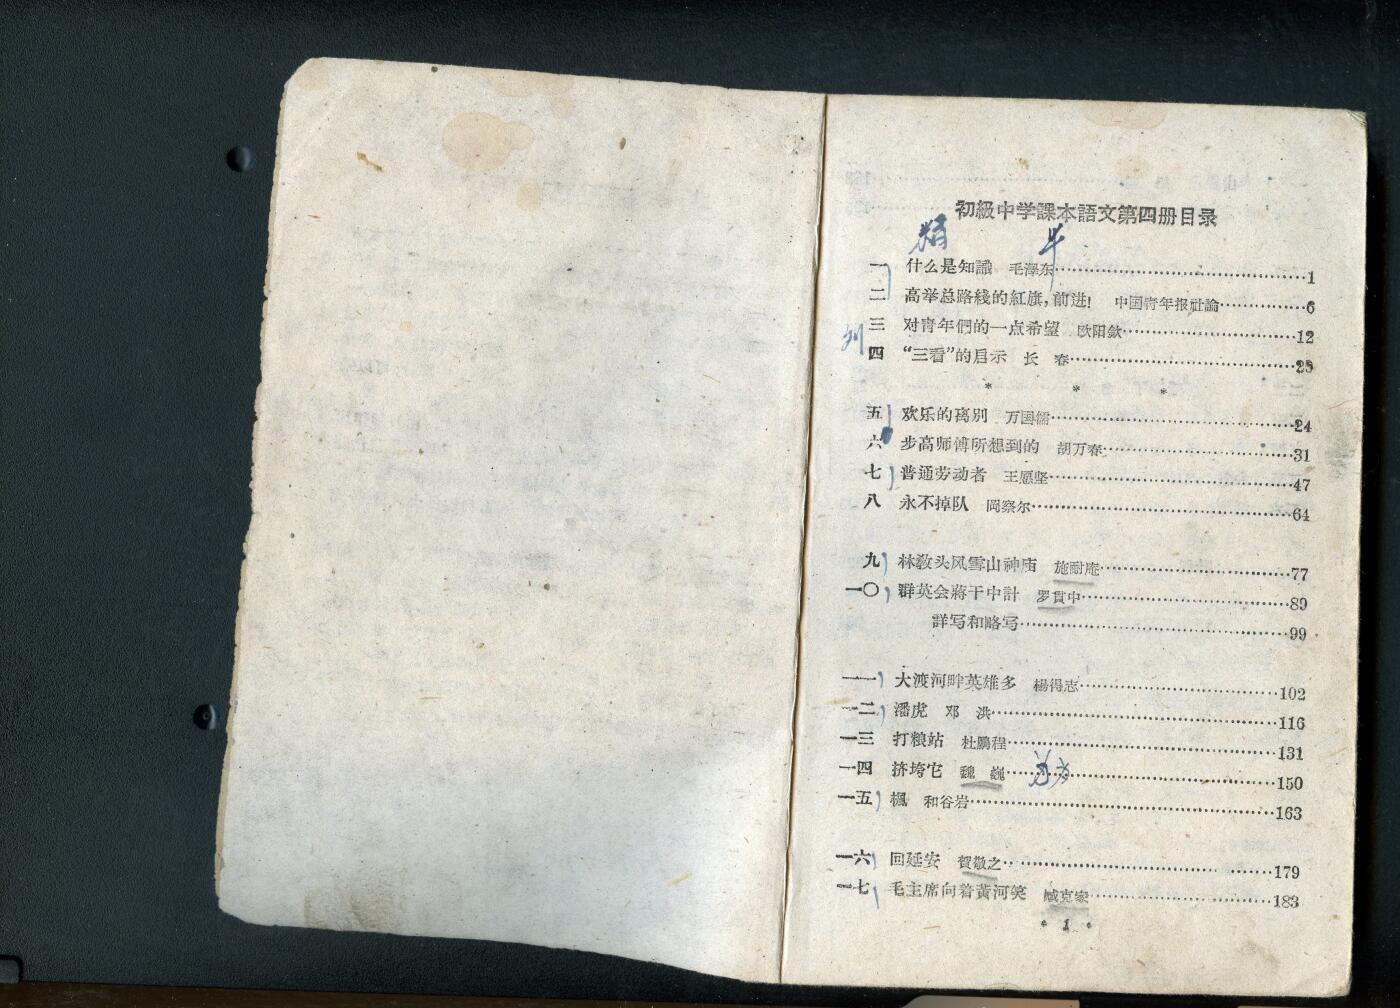 初級中学課本語文第四册目录
一 什么是知識 毛澤东……1
二 高举总路綫的紅旗，前进！ 中国青年报社論……6
三 对青年們的一点希望 欧阳欽……12
四 “三看”的启示 长 春……20
* * *
五 欢乐的离别 万国儒……24
六 步高师傅所想到的 胡万春……31
七 普通劳动者 王愿坚……47
八 永不掉队 岡察尔……64
九 林教头风雪山神庙 施耐庵……77
一〇 群英会蔣干中計 罗貫中……89
詳写和略写……99
一一 大渡河畔英雄多 楊得志……102
一二 潘虎 邓 洪……116
一三 打粮站 杜鹏程……131
一四 挤垮它 魏 巍……150
一五 楓 和谷岩……163
一六 回延安 賀敬之……179
一七 毛主席向着黃河笑 臧克家……183
• 1 •